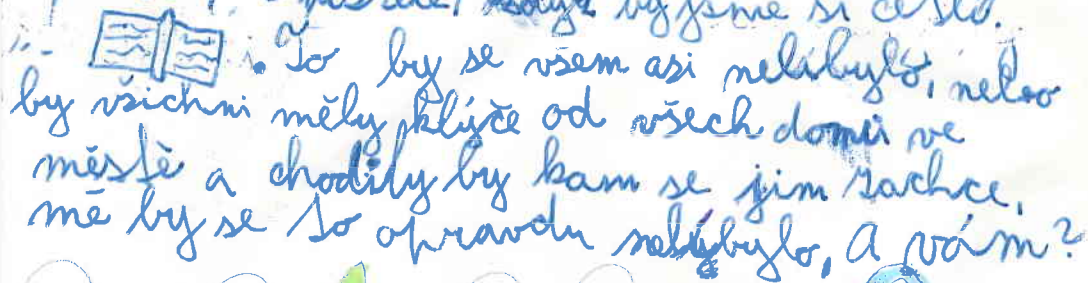 by jsme si
. To by se všem asi nelíbylo, nebo
by všichni měly klýče od všech domů ve
městě a chodily by kam se jim zachce.
mě by se to opravdu nelýbylo, A vám?